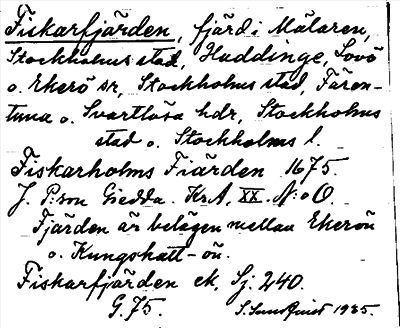 Fiskarfjärden, fjärd i Mälaren,
Stockholms stad, Huddinge, Lovö
o. Ekerö sr, Stockholms stad, Fären-
tuna o. Svartlösa hdr, Stockholms
stad o. Stockholms l.
Fiskarholms Fiärden 1675.
J. P:son Gedda. KrA, XX. N:o O.
Fjärden är belägen mellan Ekerön
o. Kungshatt-ön.
Fiskarfjärden ek. Sj. 240.
G. 75. S. Sundquist 1935.